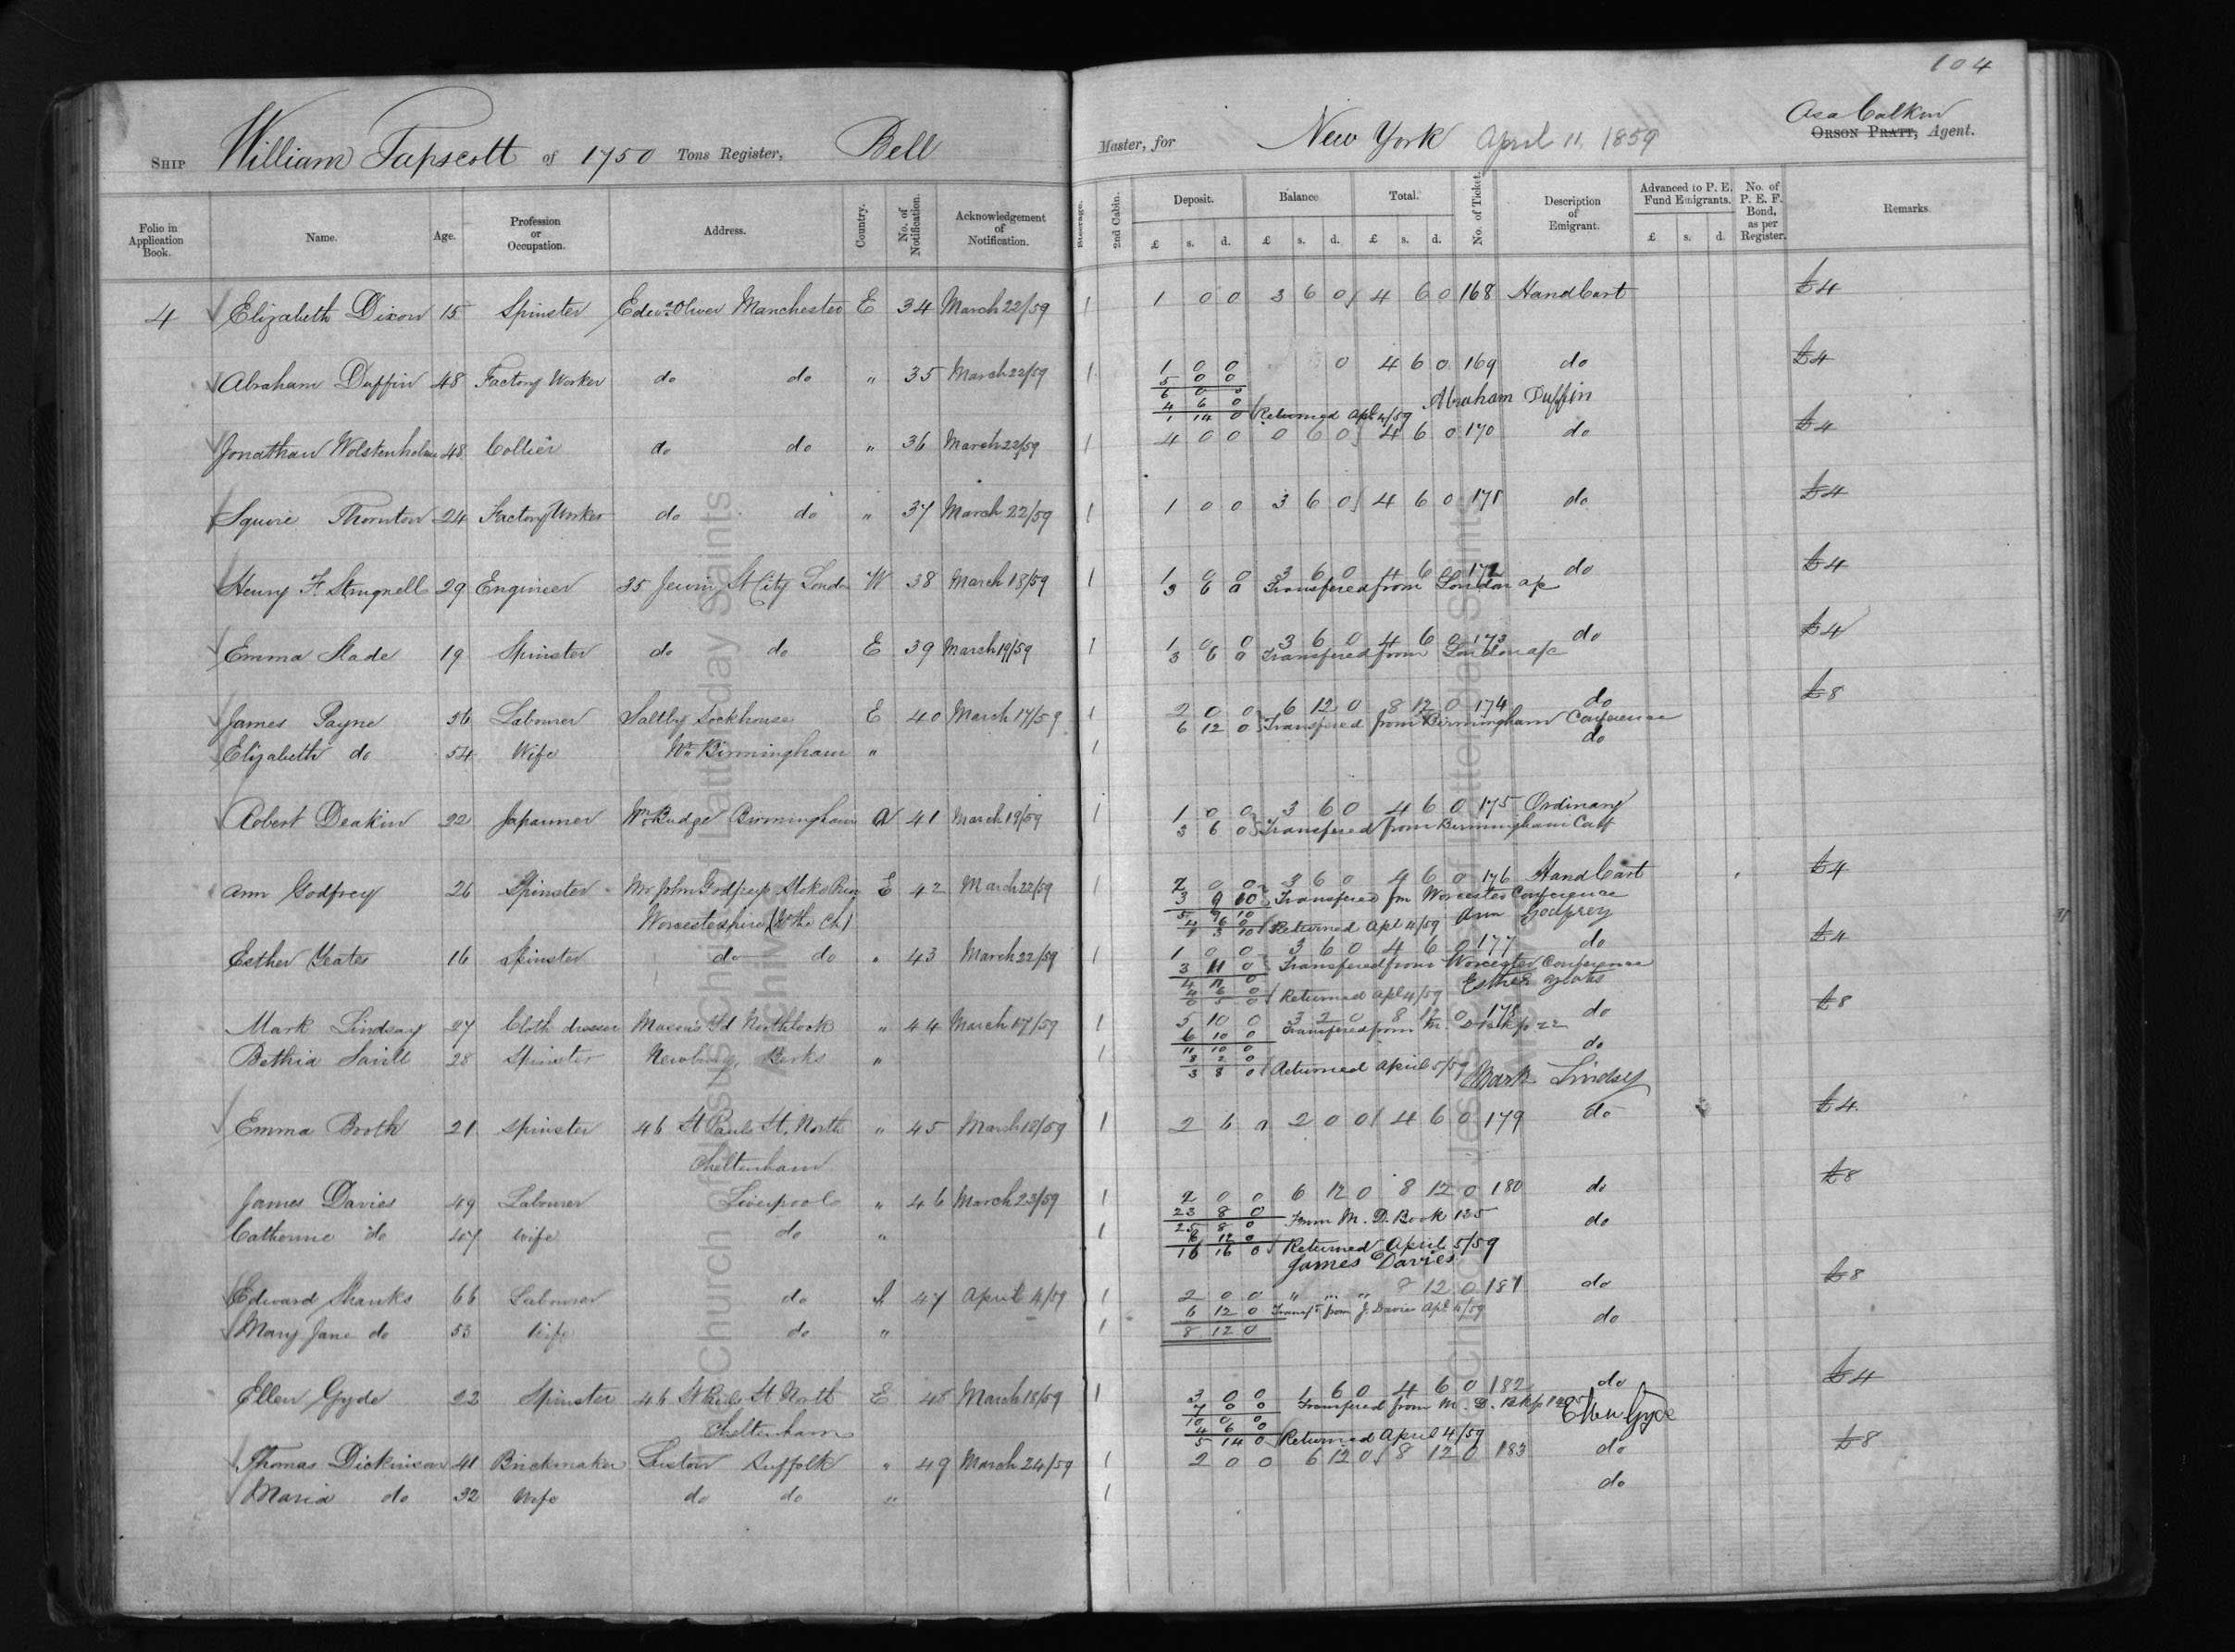 104
Asa Calkin
SHIP William Tapscott of 1750 Tons Register, Bell Master, for New York April 11, 1859 ORSON PRATT, Agent.
Folio in Application Book. Name. Age. Profession or Occupation. Address. Country. No. of Notification. Acknowledgement of Notification. Steerage. 2nd Cabin. Deposit. Balance Total. No. of Ticket. Description of Emigrant. Advanced to P. E. Fund Emigrants. No. of P. E. F. Bond, as per Register. Remarks
£ s. d. £ s. d. £ s. d. £ s. d.
4 Elizabeth Dixon 15 Spinster Oliver Manchester E 34 March 22/59 1 1 0 0 3 6 0 4 6 0 168 HandCart £4
Abraham Duffin 48 Factory Worker do do " 35 March 22/59 1 1 0 0 0 4 6 0 169 do £4
5 0 0
6 0 0
4 6 0 Abraham Duffin
1 14 0 Returned Apl 4/59
Jonathan Wolstenholme 48 Collier do do " 36 March 22/59 1 4 0 0 0 6 0 4 6 0 170 do £4
Squire Thornton 24 Factory Worker do do " 37 March 22/59 1 1 0 0 3 6 0 4 6 0 171 do £4
Henry F. Strugnell 29 Engineer 35 Jewin St City London W 38 March 18/59 1 1 0 0 3 6 0 4 6 0 172 do £4
3 6 0 Transfered from London a/c
Emma Slade 19 Spinster do do E 39 March 19/59 1 1 0 0 3 6 0 4 6 0 173 do £4
3 6 0 Transfered from London a/c
James Payne 56 Labourer Saltby E 40 March 17/59 1 2 0 0 6 12 0 8 12 0 174 do £8
6 12 0 Transfered from Birmingham Conference
Elizabeth do 54 Wife Birmingham " 1 do
Robert Deakin 22 Japanner Wm Rudge Birmingham 41 March 19/59 1 1 0 0 3 6 0 4 6 0 175 Ordinary
3 6 0 Transfered from Birmingham Conf
Ann Godfrey 26 Spinster Mr John Godfrey Stoke Prior E 42 March 22/59 1 2 0 0 3 6 0 4 6 0 176 HandCart £4
Worcestershire 3 9 10 Transfered fm Worcester Conference
5 9 10 Ann Godfrey
4 6 0
1 3 10 Returned Apl 4/59
Esther Yeates 16 Spinster do do " 43 March 22/59 1 1 0 0 3 6 0 4 6 0 177 do £4
3 11 0 Transfered from Worcester Conference
4 11 0
4 6 0
0 5 0 Returned Apl 4/59
Mark Lindsay 27 Cloth dresser Masons Yd Northbrook " 44 March 17/59 1 5 10 0 3 2 0 8 12 0 178 do £8
6 10 0 Transfered from M. D.
Bethia Savill 28 Spinster Newbury, Berks " 1 11 10 0 do
8 2 0
3 8 0 Returned April 5/59 Mark Lindsey
Emma Booth 21 Spinster 46 St Pauls St. North " 45 March 18/59 1 2 6 0 2 0 0 4 6 0 179 do £4
Cheltenham
James Davies 49 Labourer Liverpool " 46 March 23/59 1 2 0 0 6 12 0 8 12 0 180 do £8
23 8 0 From M. D. Book 135
Catherine do 47 Wife do " 1 25 8 0 do
8 12 0
16 16 0 Returned April 5/59
James Davies
Edward Shanks 66 Labourer do 47 April 4/59 1 2 0 0 " " " 8 12 0 181 do £8
6 12 0 from J. Davies Apl 4/59
Mary Jane do 53 Wife do " 1 8 12 0 do
Ellen Gyde 22 Spinster 46 St Pauls St North E 48 March 18/59 1 3 0 0 1 6 0 4 6 0 182 do £4
Cheltenham 7 0 0 Transfered from M. D. Ellen Gyde
10 0 0
4 6 0
5 14 0 Returned April 4/59
Thomas Dickinson 41 Brickmaker Suffolk " 49 March 24/59 1 2 0 0 6 12 0 8 12 0 183 do £8
Maria do 32 Wife do do " 1 do